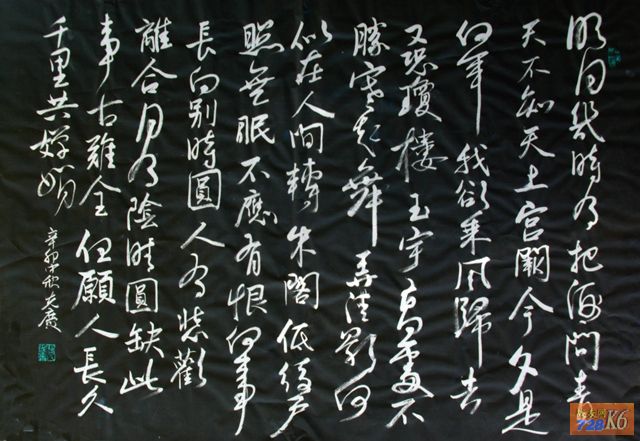 明月幾時有把酒問青
天不知天上宫闕今夕是
何年我欲乘風歸去
又恐瓊樓玉宇高處不
勝寒起舞弄清影何
似在人间轉朱閣低綺户
照無眠不應有恨何事
長向别時圓人有悲歡
離合月有陰晴圓缺此
事古難全但願人長久
千里共嬋娟
辛卯中秋
728 K6